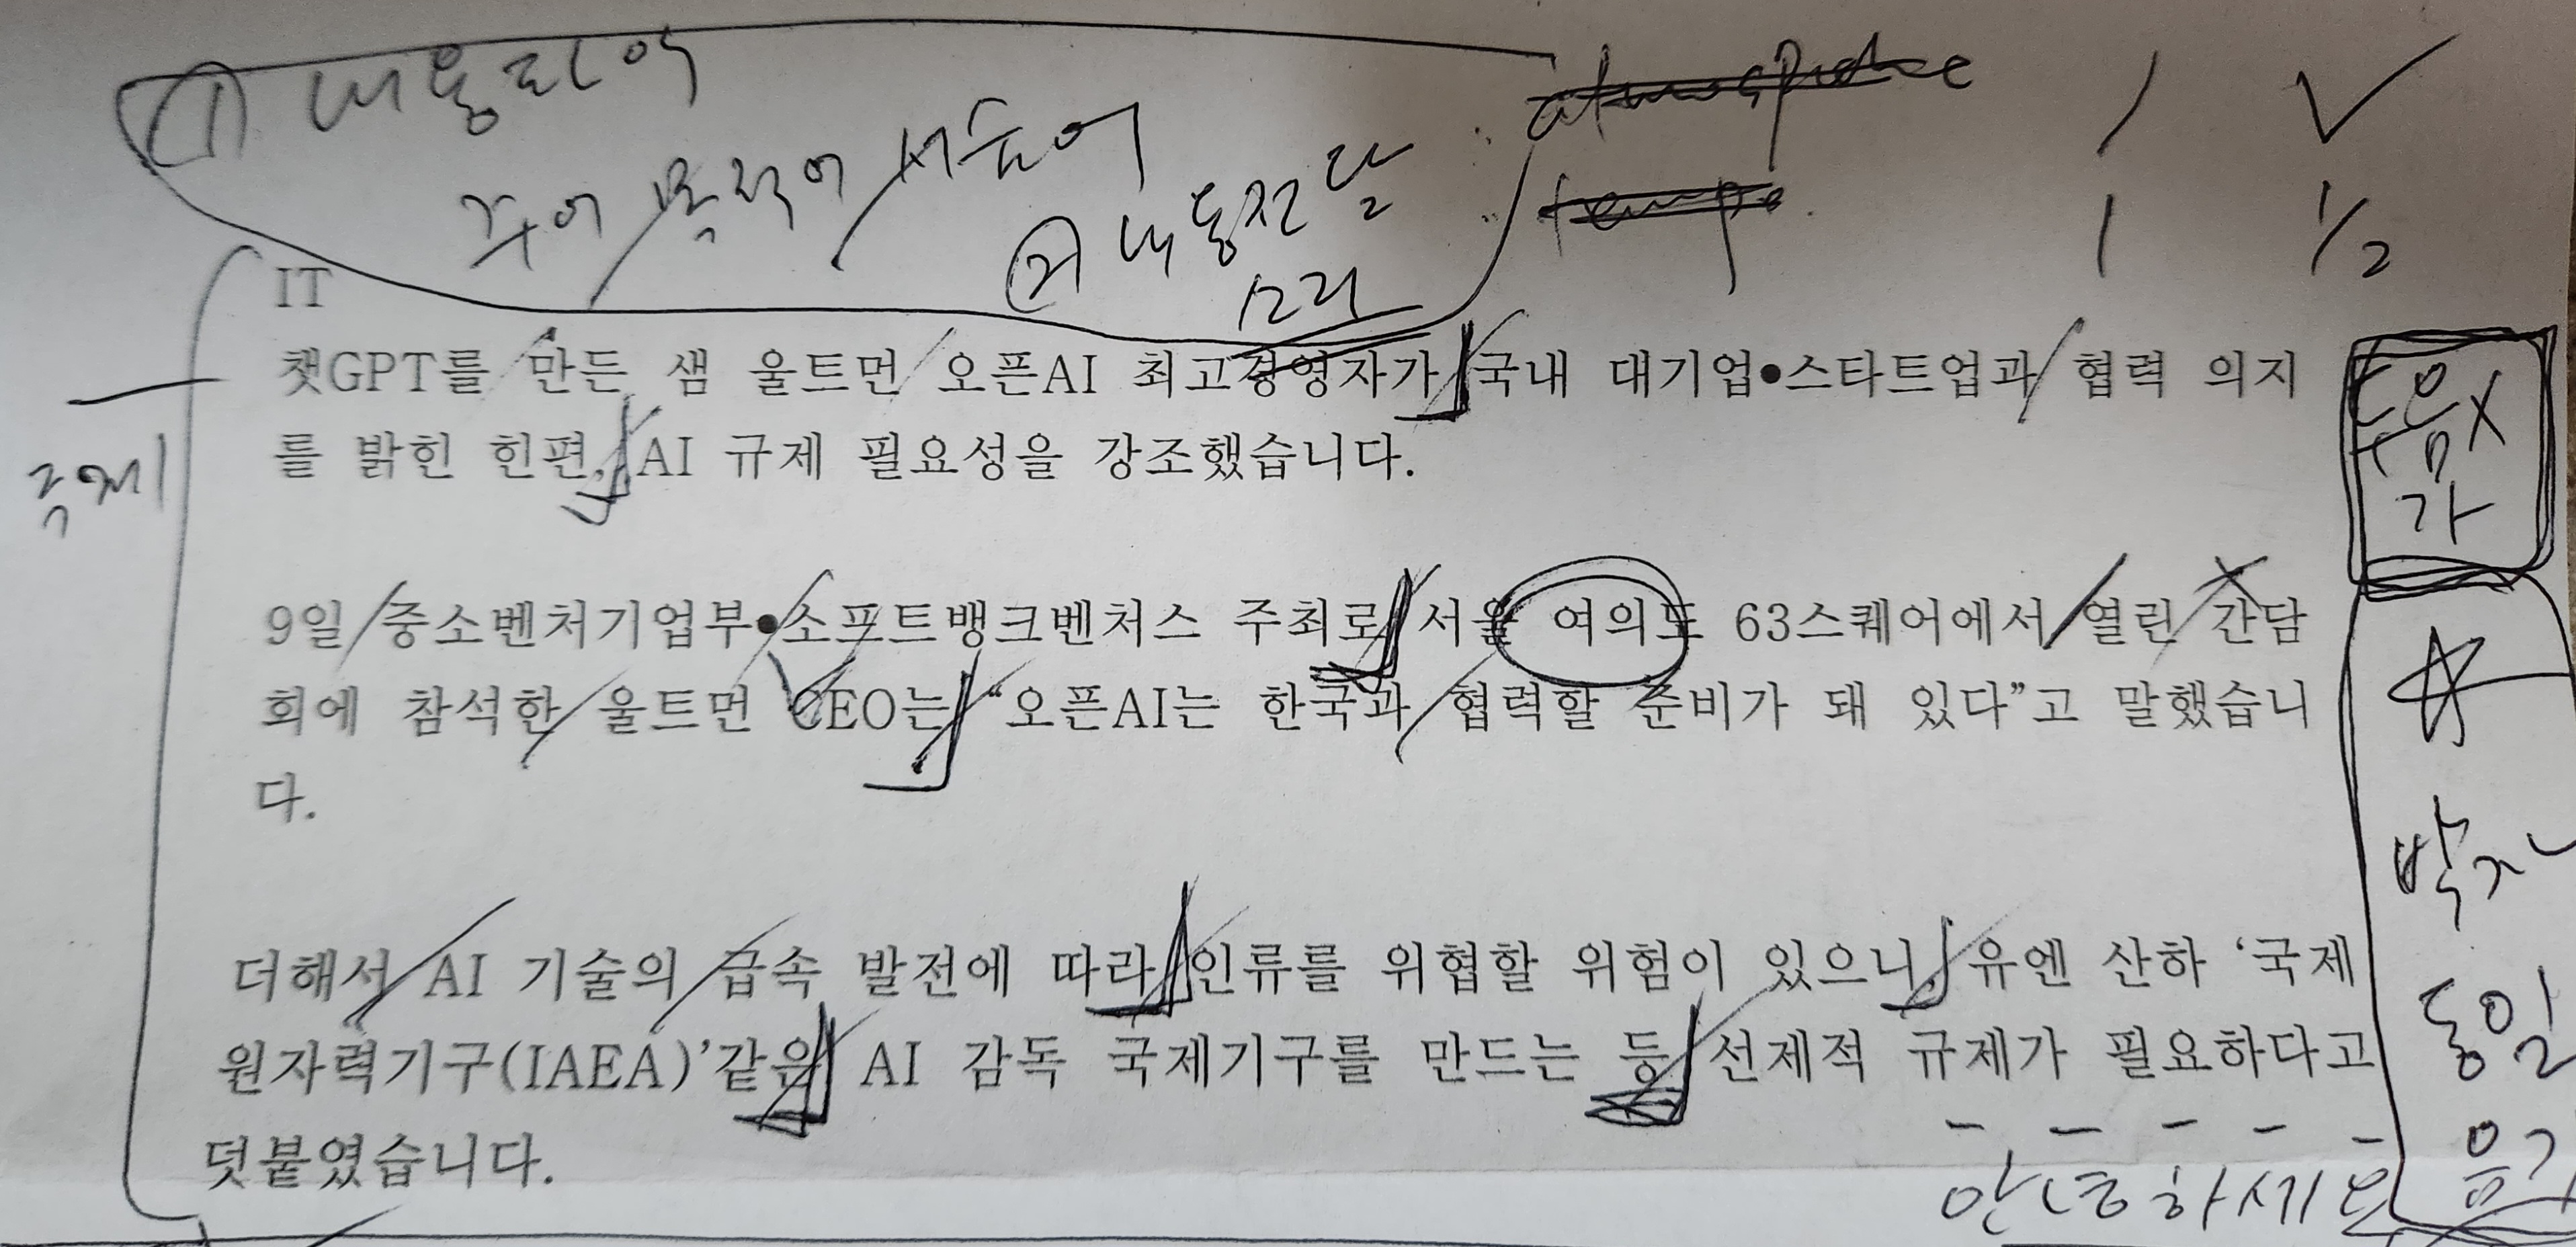 ① 내용파악
주어/목적어/서술어
② 내용전달
소리
IT
챗GPT를 만든 샘 울트먼 오픈AI 최고경영자가 국내 대기업•스타트업과 협력 의지
를 밝힌 힌편, AI 규제 필요성을 강조했습니다.
주제
9일 중소벤처기업부•소프트뱅크벤처스 주최로 서울 여의도 63스퀘어에서 열린 간담
회에 참석한 울트먼 CEO는 “오픈AI는 한국과 협력할 준비가 돼 있다”고 말했습니
다.
더해서 AI 기술의 급속 발전에 따라 인류를 위협할 위험이 있으니, 유엔 산하 ‘국제
원자력기구(IAEA)’같은 AI 감독 국제기구를 만드는 등 선제적 규제가 필요하다고
덧붙였습니다.
1 ✓
1 1/2
동일
안녕하세요